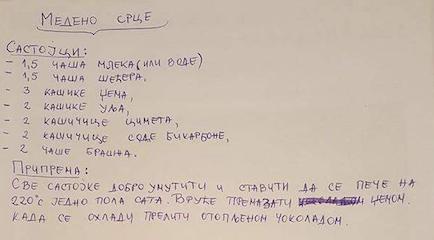 Медено срце
Састојци:
- 1,5 чаша млека (или воде)
- 1,5 чаша шећера.
- 3 кашике џема,
- 2 кашике уља,
- 2 кашичице цимета,
- 2 кашичице соде бикарбоне,
- 2 чаше брашна.
Припрема:
Све састојке добро умутити и ставити да се пече на
220°C једно пола сата. Вруће премазати џемом.
Када се охлади прелити отопљеном чоколадом.